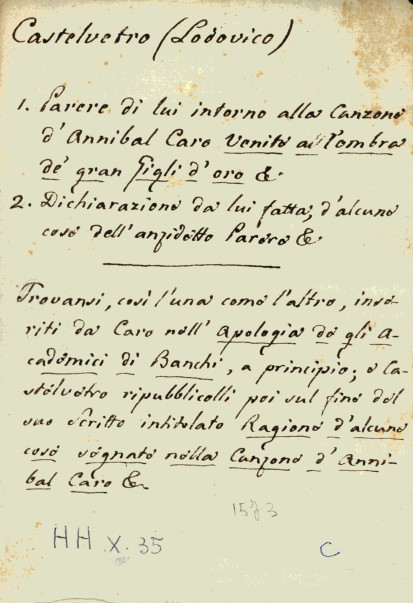 Castelvetro (Lodovico)
1. Parere di lui intorno alla Canzone
d'Annibal Caro Venite all'ombra
de' gran Gigli d'oro &
2. Dichiarazione da lui fatta, d'alcune
cose dell'anzidetto Parere &
Trovansi, così l'una come l'altro, inse-
riti da Caro nell' Apologia de gli A-
cademici di Banchi, a principio; e Ca-
stelvetro ripubblicolli poi sul fine del
suo Scritto intitolato Ragione d'alcune
cose segnate nella Canzone d'Anni-
bal Caro &.
1573
HH .X. 35
C